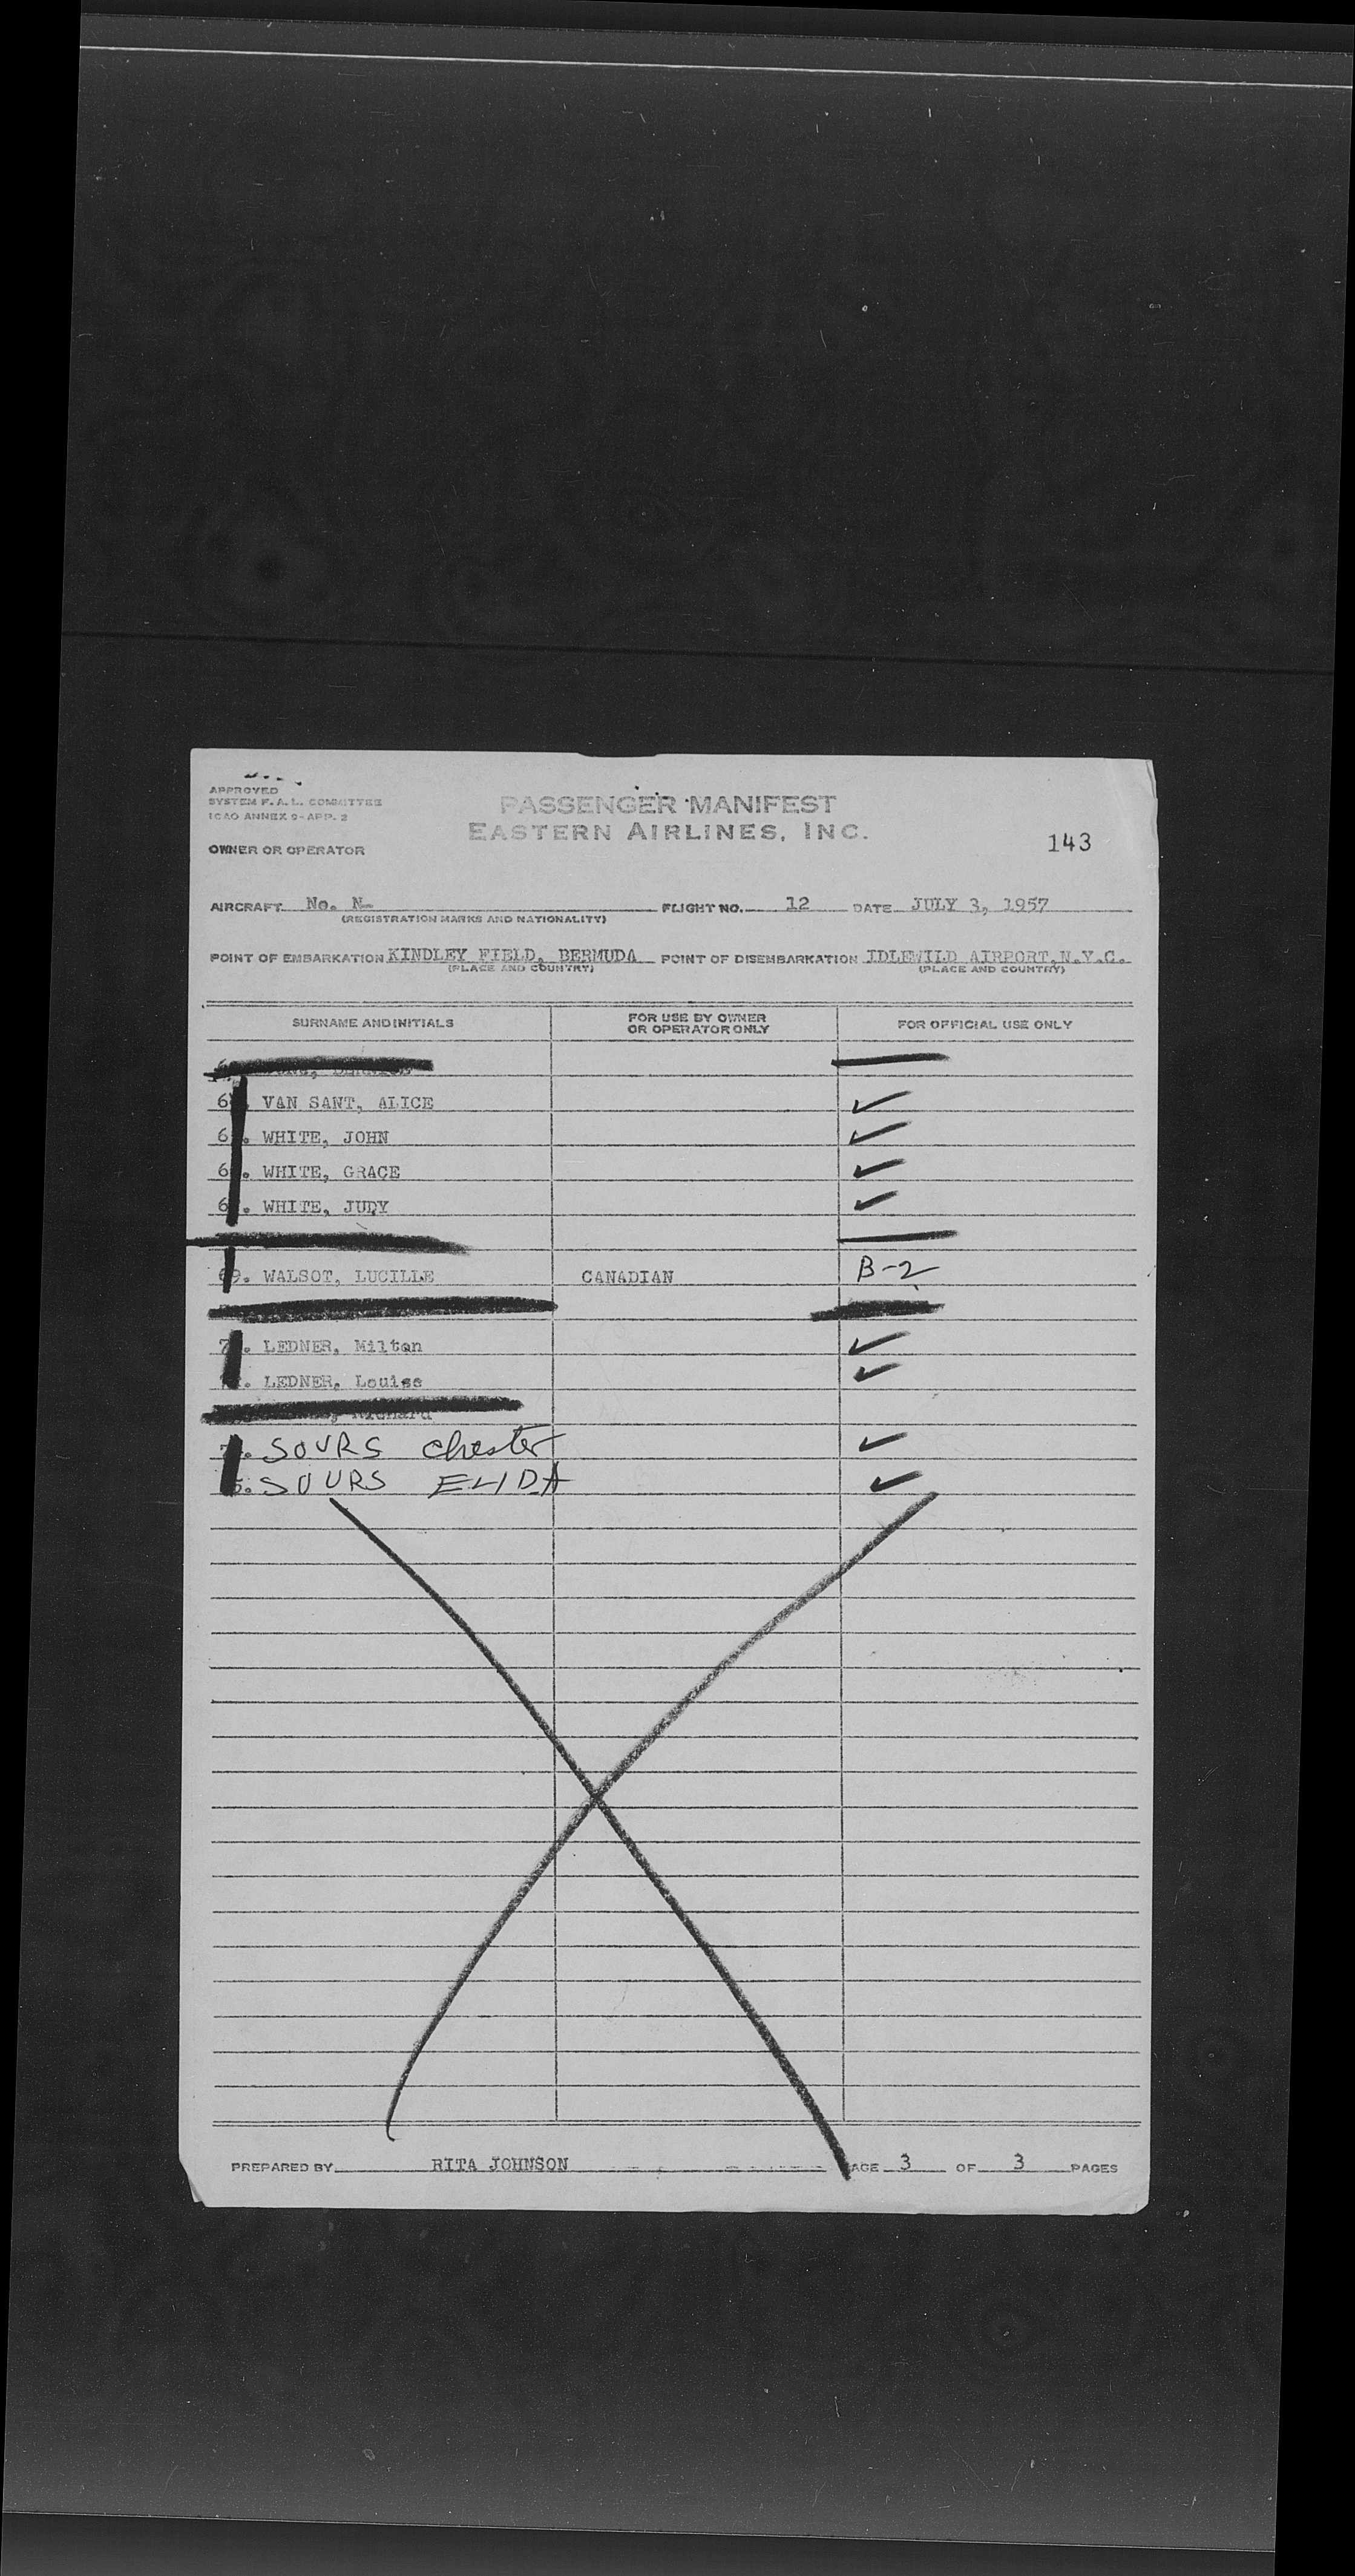 APPROVED
SYSTEM F. A. L. COMMITTEE
ICAO ANNEX 9-APP. 2
PASSENGER MANIFEST
EASTERN AIRLINES, INC.
143
OWNER OR OPERATOR
AIRCRAFT No. N- FLIGHT NO. 12 DATE JULY 3, 1957
(REGISTRATION MARKS AND NATIONALITY)
POINT OF EMBARKATION KINDLEY FIELD, BERMUDA POINT OF DISEMBARKATION IDLEWILD AIRPORT, N.Y.C.
(PLACE AND COUNTRY) (PLACE AND COUNTRY)
SURNAME AND INITIALS FOR USE BY OWNER OR OPERATOR ONLY FOR OFFICIAL USE ONLY
VAN SANT, ALICE ✓
WHITE, JOHN ✓
WHITE, GRACE ✓
WHITE, JUDY ✓
69. WALSOT, LUCILLE CANADIAN B-2
LEDNER, Milton ✓
LEDNER, Louise ✓
Richard
SOURS Chester ✓
SOURS ELIDA ✓
PREPARED BY RITA JOHNSON PAGE 3 OF 3 PAGES